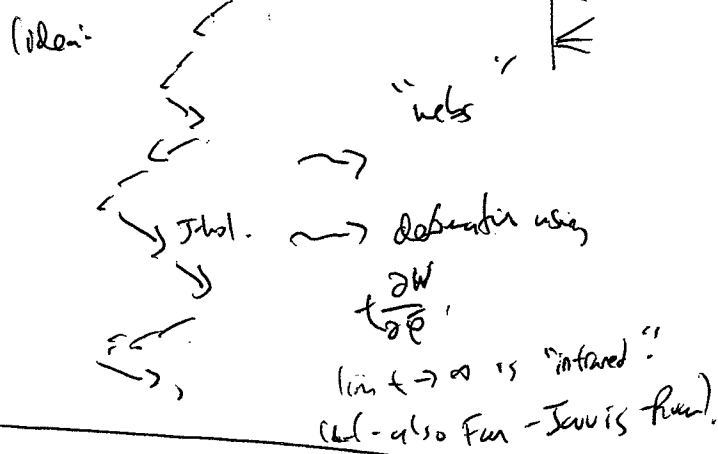 Idea:
"webs"
J-hol. ⟿ deformation using
t ∂W/∂φ̄ .
lim t → ∞ is "infrared".
also Fan - Jarvis - Ruan).